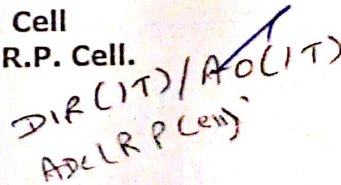 Cell
R.P. Cell.
DIR(IT)/AO(IT)
ADC(R P Cell)